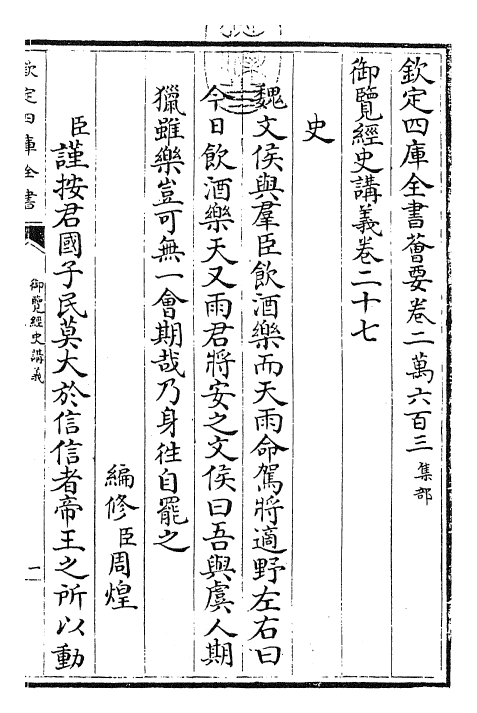 欽定四庫全書薈要卷二萬六百三 集部
御覽經史講義卷二十七
史
魏文侯與羣臣飲酒樂而天雨命駕將適野左右曰
今日飲酒樂天又雨君將安之文侯曰吾與虞人期
獵雖樂豈可無一會期哉乃身往自罷之
編修臣周煌
臣謹按君國子民莫大於信信者帝王之所以動
欽定四庫全書
御覽經史講義
一